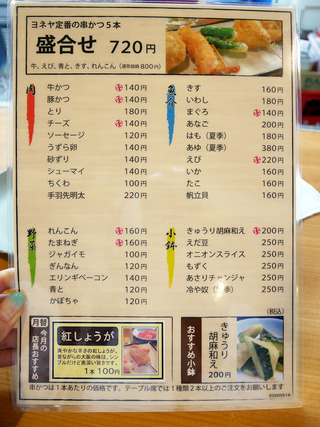 ヨネヤ定番の串かつ5本
盛合せ 720円
牛、えび、青と、きす、れんこん (通常価格800円)
肉
牛かつ 140円
豚かつ 140円
とり 180円
チーズ 140円
ソーセージ 120円
うずら卵 140円
砂ずり 140円
シューマイ 140円
ちくわ 100円
手羽先明太 220円
魚介
きす 160円
いわし 180円
まぐろ 140円
あなご 200円
はも (夏季) 180円
あゆ (夏季) 380円
えび 220円
いか 160円
たこ 160円
帆立貝 160円
野菜
れんこん 160円
たまねぎ 160円
ジャガイモ 100円
ぎんなん 120円
エリンギベーコン 140円
青と 120円
かぼちゃ 120円
小鉢
きゅうり胡麻和え 200円
えだ豆 250円
オニオンスライス 250円
もずく 250円
あさりチャンジャ 250円
冷や奴 250円
(税込)
月替
今月の
店長おすすめ
紅しょうが
爽やかな辛さの紅しょうが。
昔ながらの大阪の味は、シン
プルだけど奥深い旨さです。
1本 100円
おすすめ小鉢
きゅうり
胡麻和え
200円
串かつは1本あたりの価格です。テーブル席では1種類2本以上のご注文をお願いします